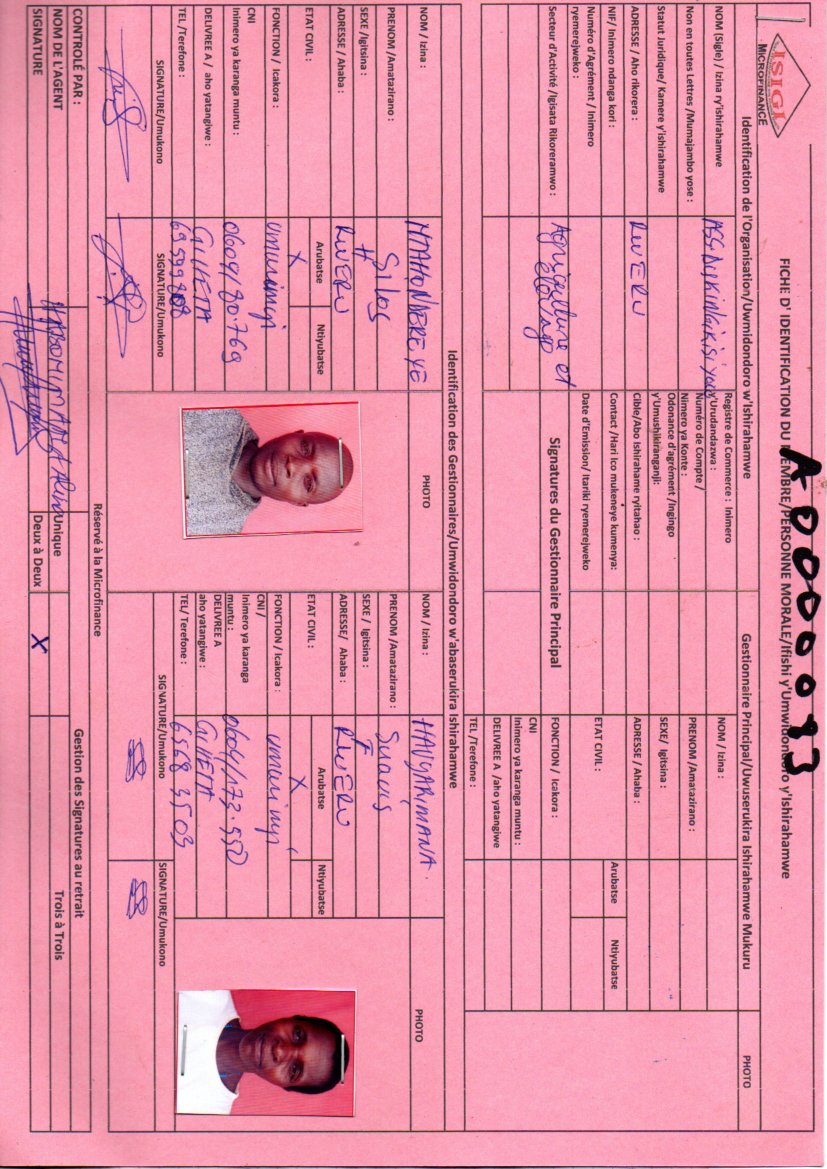 ISIGI
MICROFINANCE
A 0000093
FICHE D' IDENTIFICATION DU MEMBRE/PERSONNE MORALE/Ifishi y'Umwidondoro y'Ishirahamwe
Identification de l'Organisation/Uwmidondoro w'Ishirahamwe
Gestionnaire Principal/Uwuserukira Ishirahamwe Mukuru
PHOTO
NOM (Sigle) / Izina ry'ishirahamwe
Non en toutes Lettres /Mumajambo yose :
Statut Juridique/ Kamere y'ishirahamwe
ADRESSE / Aho rikorera :
RWERU
NIF/ Inimero ndanga kori :
Numéro d'Agrément / Inimero
ryemerejweko :
Secteur d'Activité /Igisata Rikoreramwo :
Agriculture et
élevage
Registre de Commerce : Inimero
y'Urudandazwa :
Numéro de Compte /
Nimero ya Konte :
Odonance d'agrément /Ingingo
y'Umushikiranganji:
Cible/Abo Ishirahame ryitaho :
Contact /Hari ico mukeneye kumenya:
Date d'Emission/ Itariki ryemerejweko
Signatures du Gestionnaire Principal
NOM / Izina :
PRENOM /Amatazirano :
SEXE/ Igitsina :
ADRESSE / Ahaba :
ETAT CIVIL :
Arubatse
Ntiyubatse
FONCTION / Icakora :
CNI
Inimero ya karanga muntu :
DELIVREE A /aho yatangiwe
TEL /Terefone :
Identification des Gestionnaires/Umwidondoro w'abaserukira Ishirahamwe
NOM / Izina :
NTAHOMBEREYE
PRENOM /Amatazirano :
Silas
SEXE /Igitsina :
ADRESSE / Ahaba :
RWERU
ETAT CIVIL :
Arubatse
Ntiyubatse
X
FONCTION / Icakora :
umurimyi
CNI
Inimero ya karanga muntu :
0604/80.769
DELIVREE A / aho yatangiwe :
GIHETA
TEL / Terefone :
SIGNATURE/Umukono
SIGNATURE/Umukono
PHOTO
NOM / Izina :
HAVYARIMANA
PRENOM /Amatazirano :
SEXE / Igitsina :
F
ADRESSE/ Ahaba :
RWERU
ETAT CIVIL :
Arubatse
Ntiyubatse
X
FONCTION / Icakora :
umurimyi
CNI /
Inimero ya karanga
muntu :
0604/173.550
DELIVREE A
aho yatangiwe :
GIHETA
TEL/ Terefone :
6568 3503
SIGNATURE/Umukono
SIGNATURE/Umukono
PHOTO
Réservé à la Microfinance
CONTROLÉ PAR :
NOM DE L'AGENT
SIGNATURE
Gestion des Signatures au retrait
Unique
Deux à Deux
X
Trois à Trois